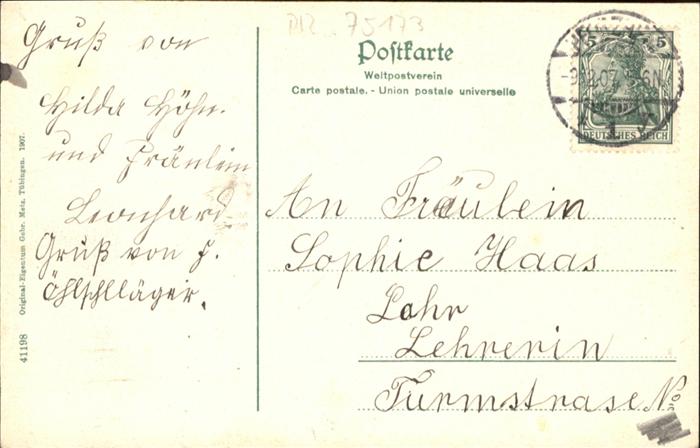 PLZ 75173
Gruß von
Hilda Höhn.
und Fräulein
Leonhard
Gruß von F.
Öhlschlläger.
Original-Eigentum Gebr. Metz, Tübingen. 1907.
41198
Postkarte
Weltpostverein
Carte postale. - Union postale universelle
5 5
DEUTSCHES REICH
An Fräulein
Sophie Haas
Lahr
Lehrerin
Turmstrase No